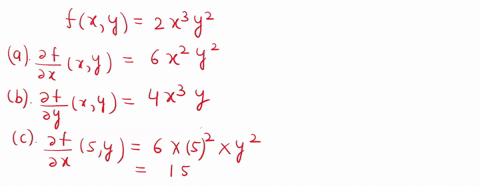 f(x,y) = 2x³y²
(a). ∂f/∂x (x,y) = 6x²y²
(b). ∂f/∂y (x,y) = 4x³y
(c). ∂f/∂x (5,y) = 6×(5)²×y²
= 15